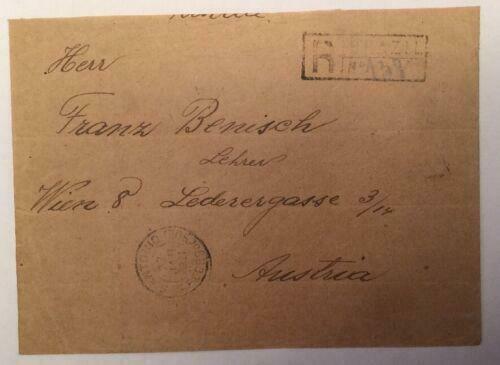 R BRAZIL
Herr
Franz Benisch
Lehrer
Wien 8 Lederergasse 3/14
Austria